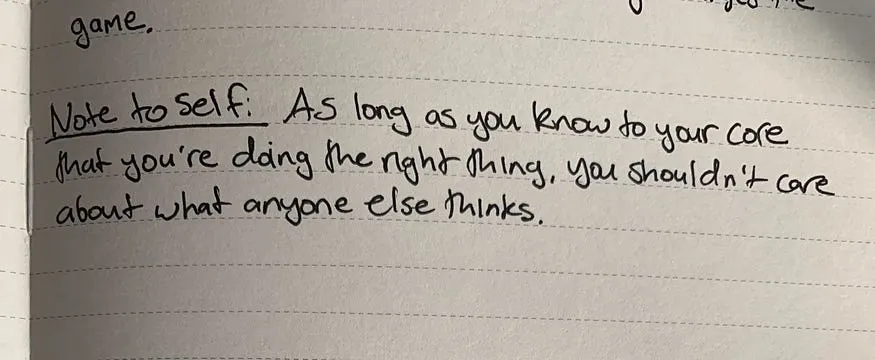 game.
Note to self: As long as you know to your core
that you're doing the right thing, you shouldn't care
about what anyone else thinks.